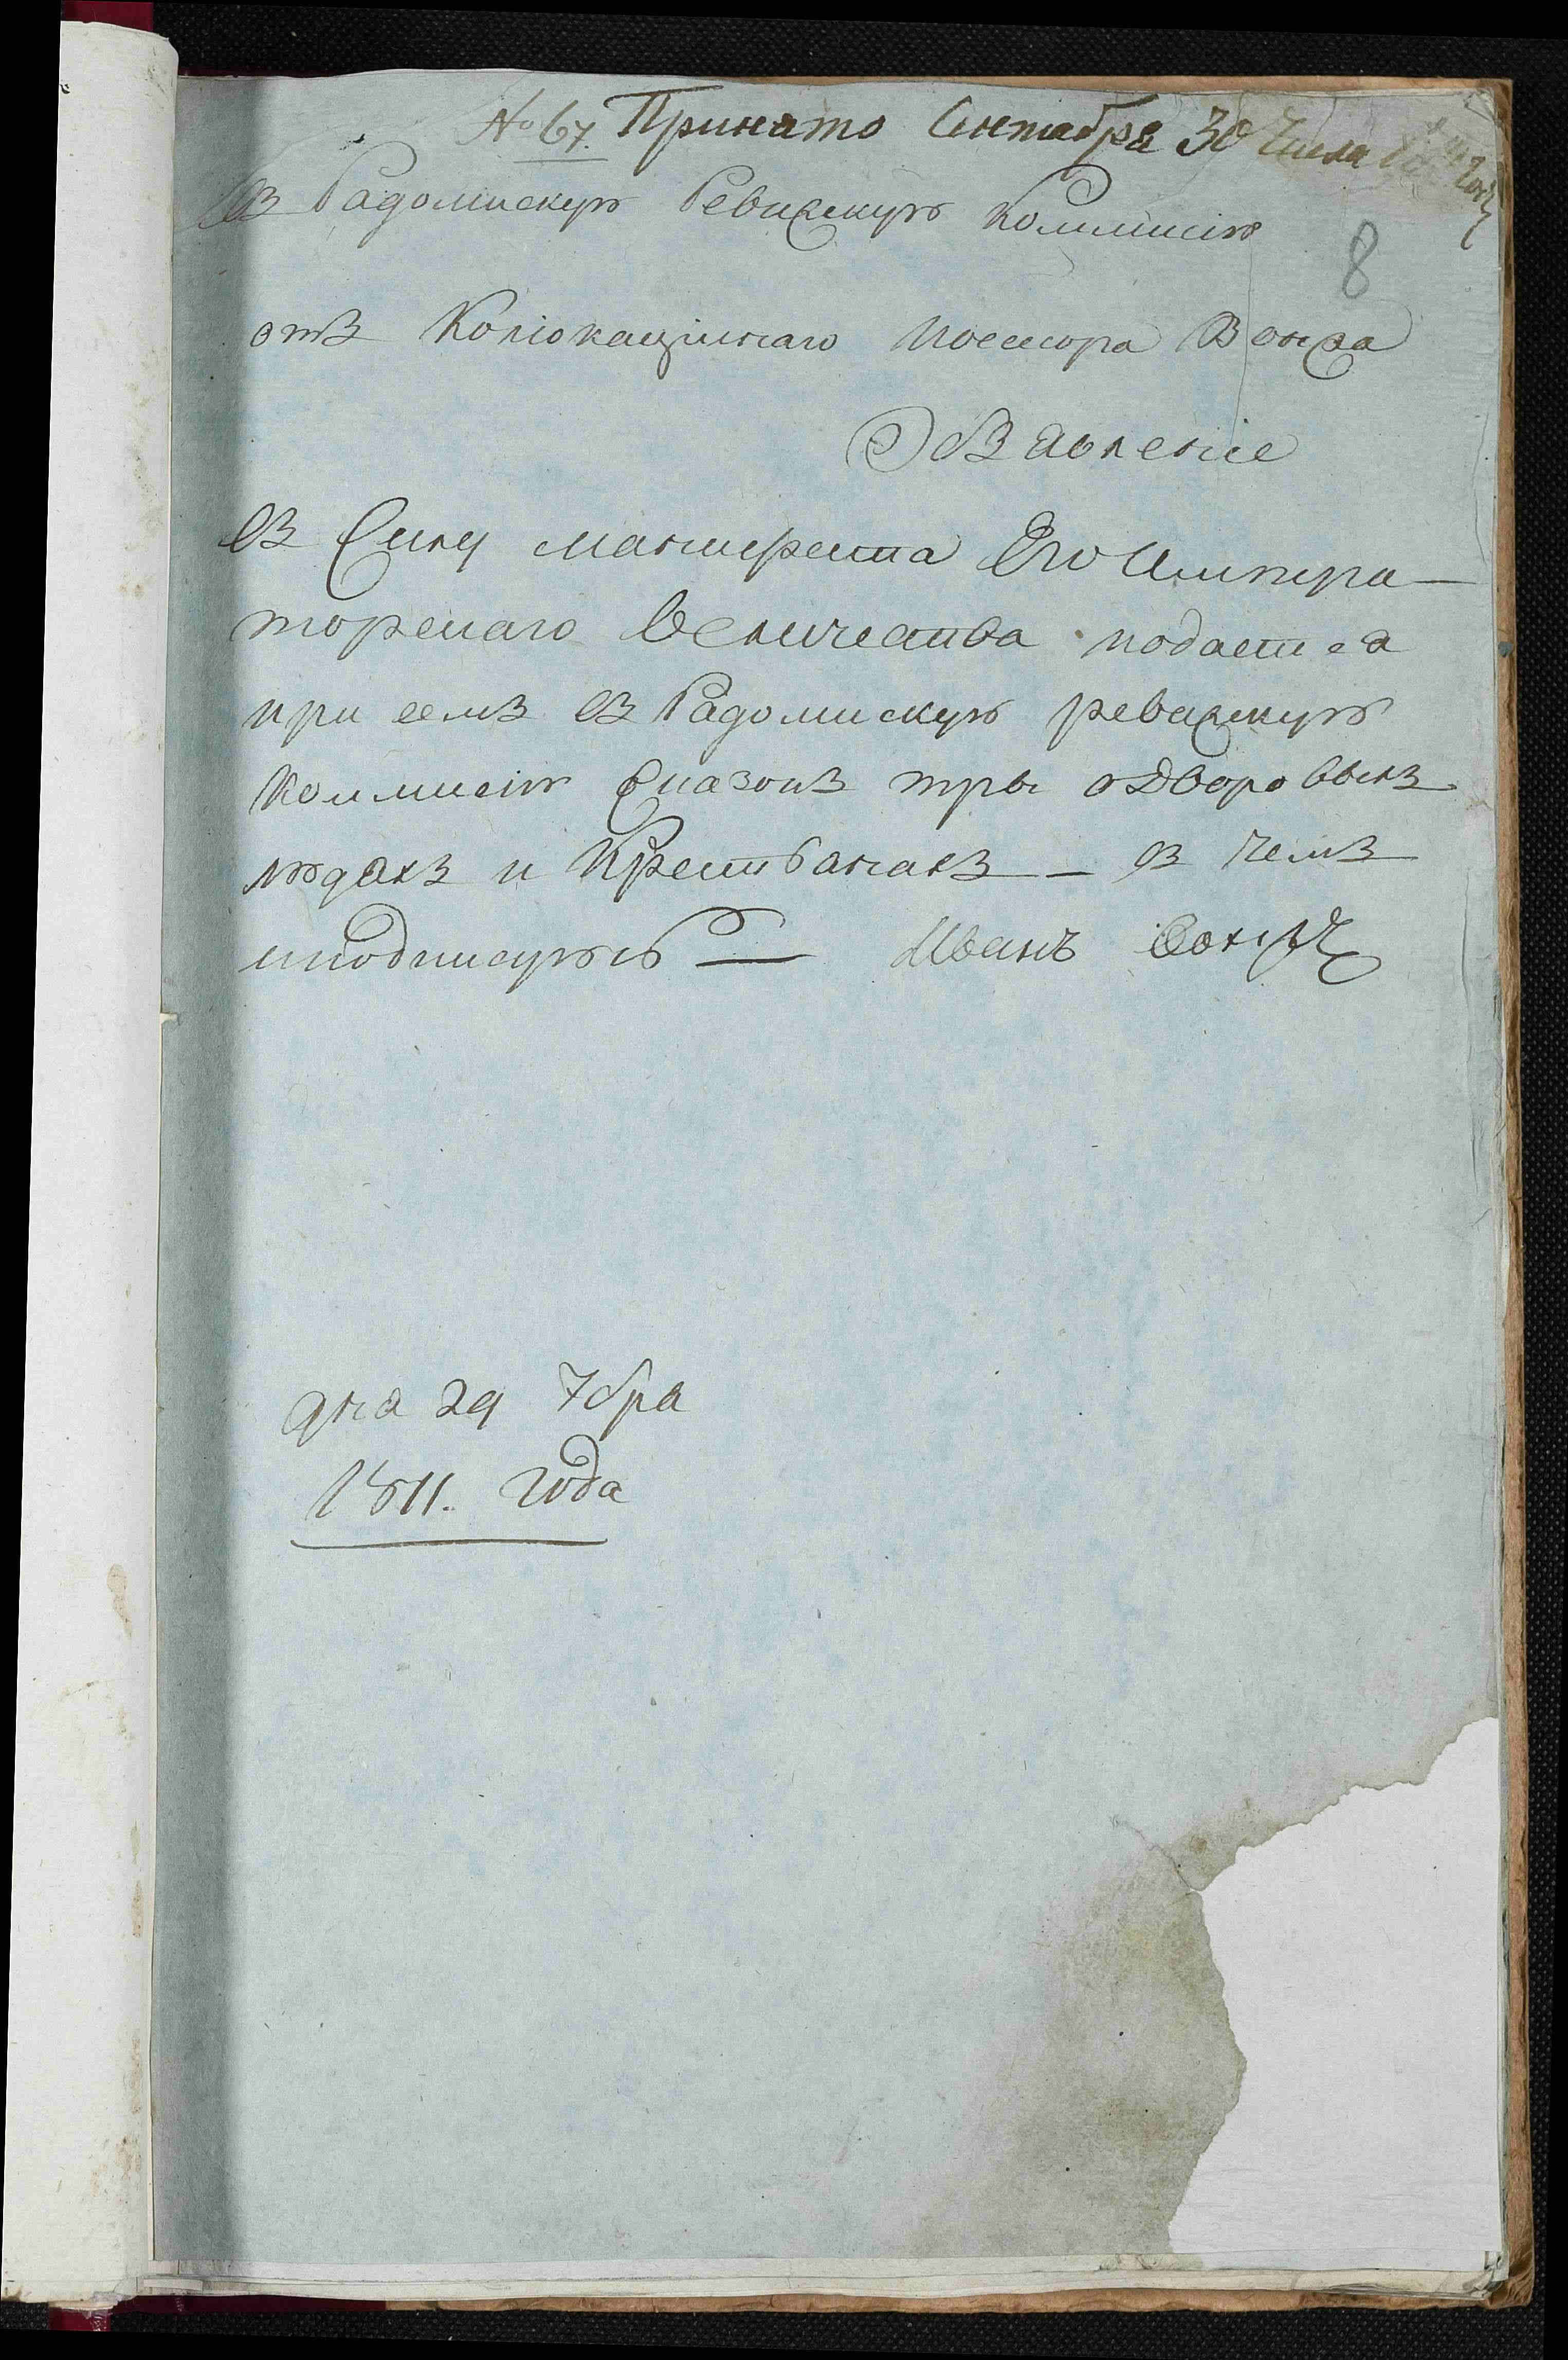 № 67. Принято Сентября 30 Числа
въ Радомискую Ревизскую Коммисию
8
отъ Колiокацiйнаго Посесора Вонжа
Объявленiе
въ Силу манифеста Его Импера-
торскаго Величества подается
при семъ въ Радомискую ревизкую
Коммисiю Сказокъ тры о Дворовыхъ
людяхъ и Крестьянахъ — въ чемъ
иподписуюсь — Иванъ
дня 29 7бра
1811. года